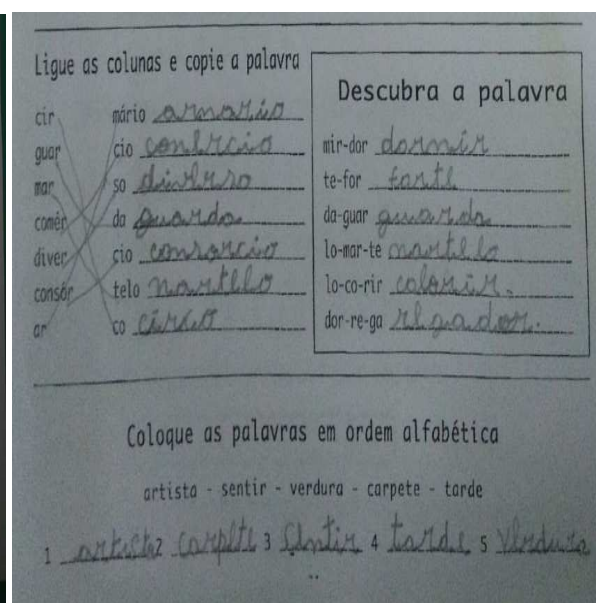 Ligue as colunas e copie a palavra
cir mário armario
guar cio comércio
mar so diverso
comér da guarda
diver cio consorcio
consór telo martelo
ar co circo
Descubra a palavra
mir-dor dormir
te-for forte
da-guar guarda
lo-mar-te martelo
lo-co-rir colorir.
dor-re-ga regador.
Coloque as palavras em ordem alfabética
artista - sentir - verdura - carpete - tarde
1 artista 2 carpete 3 sentir 4 tarde 5 verdura